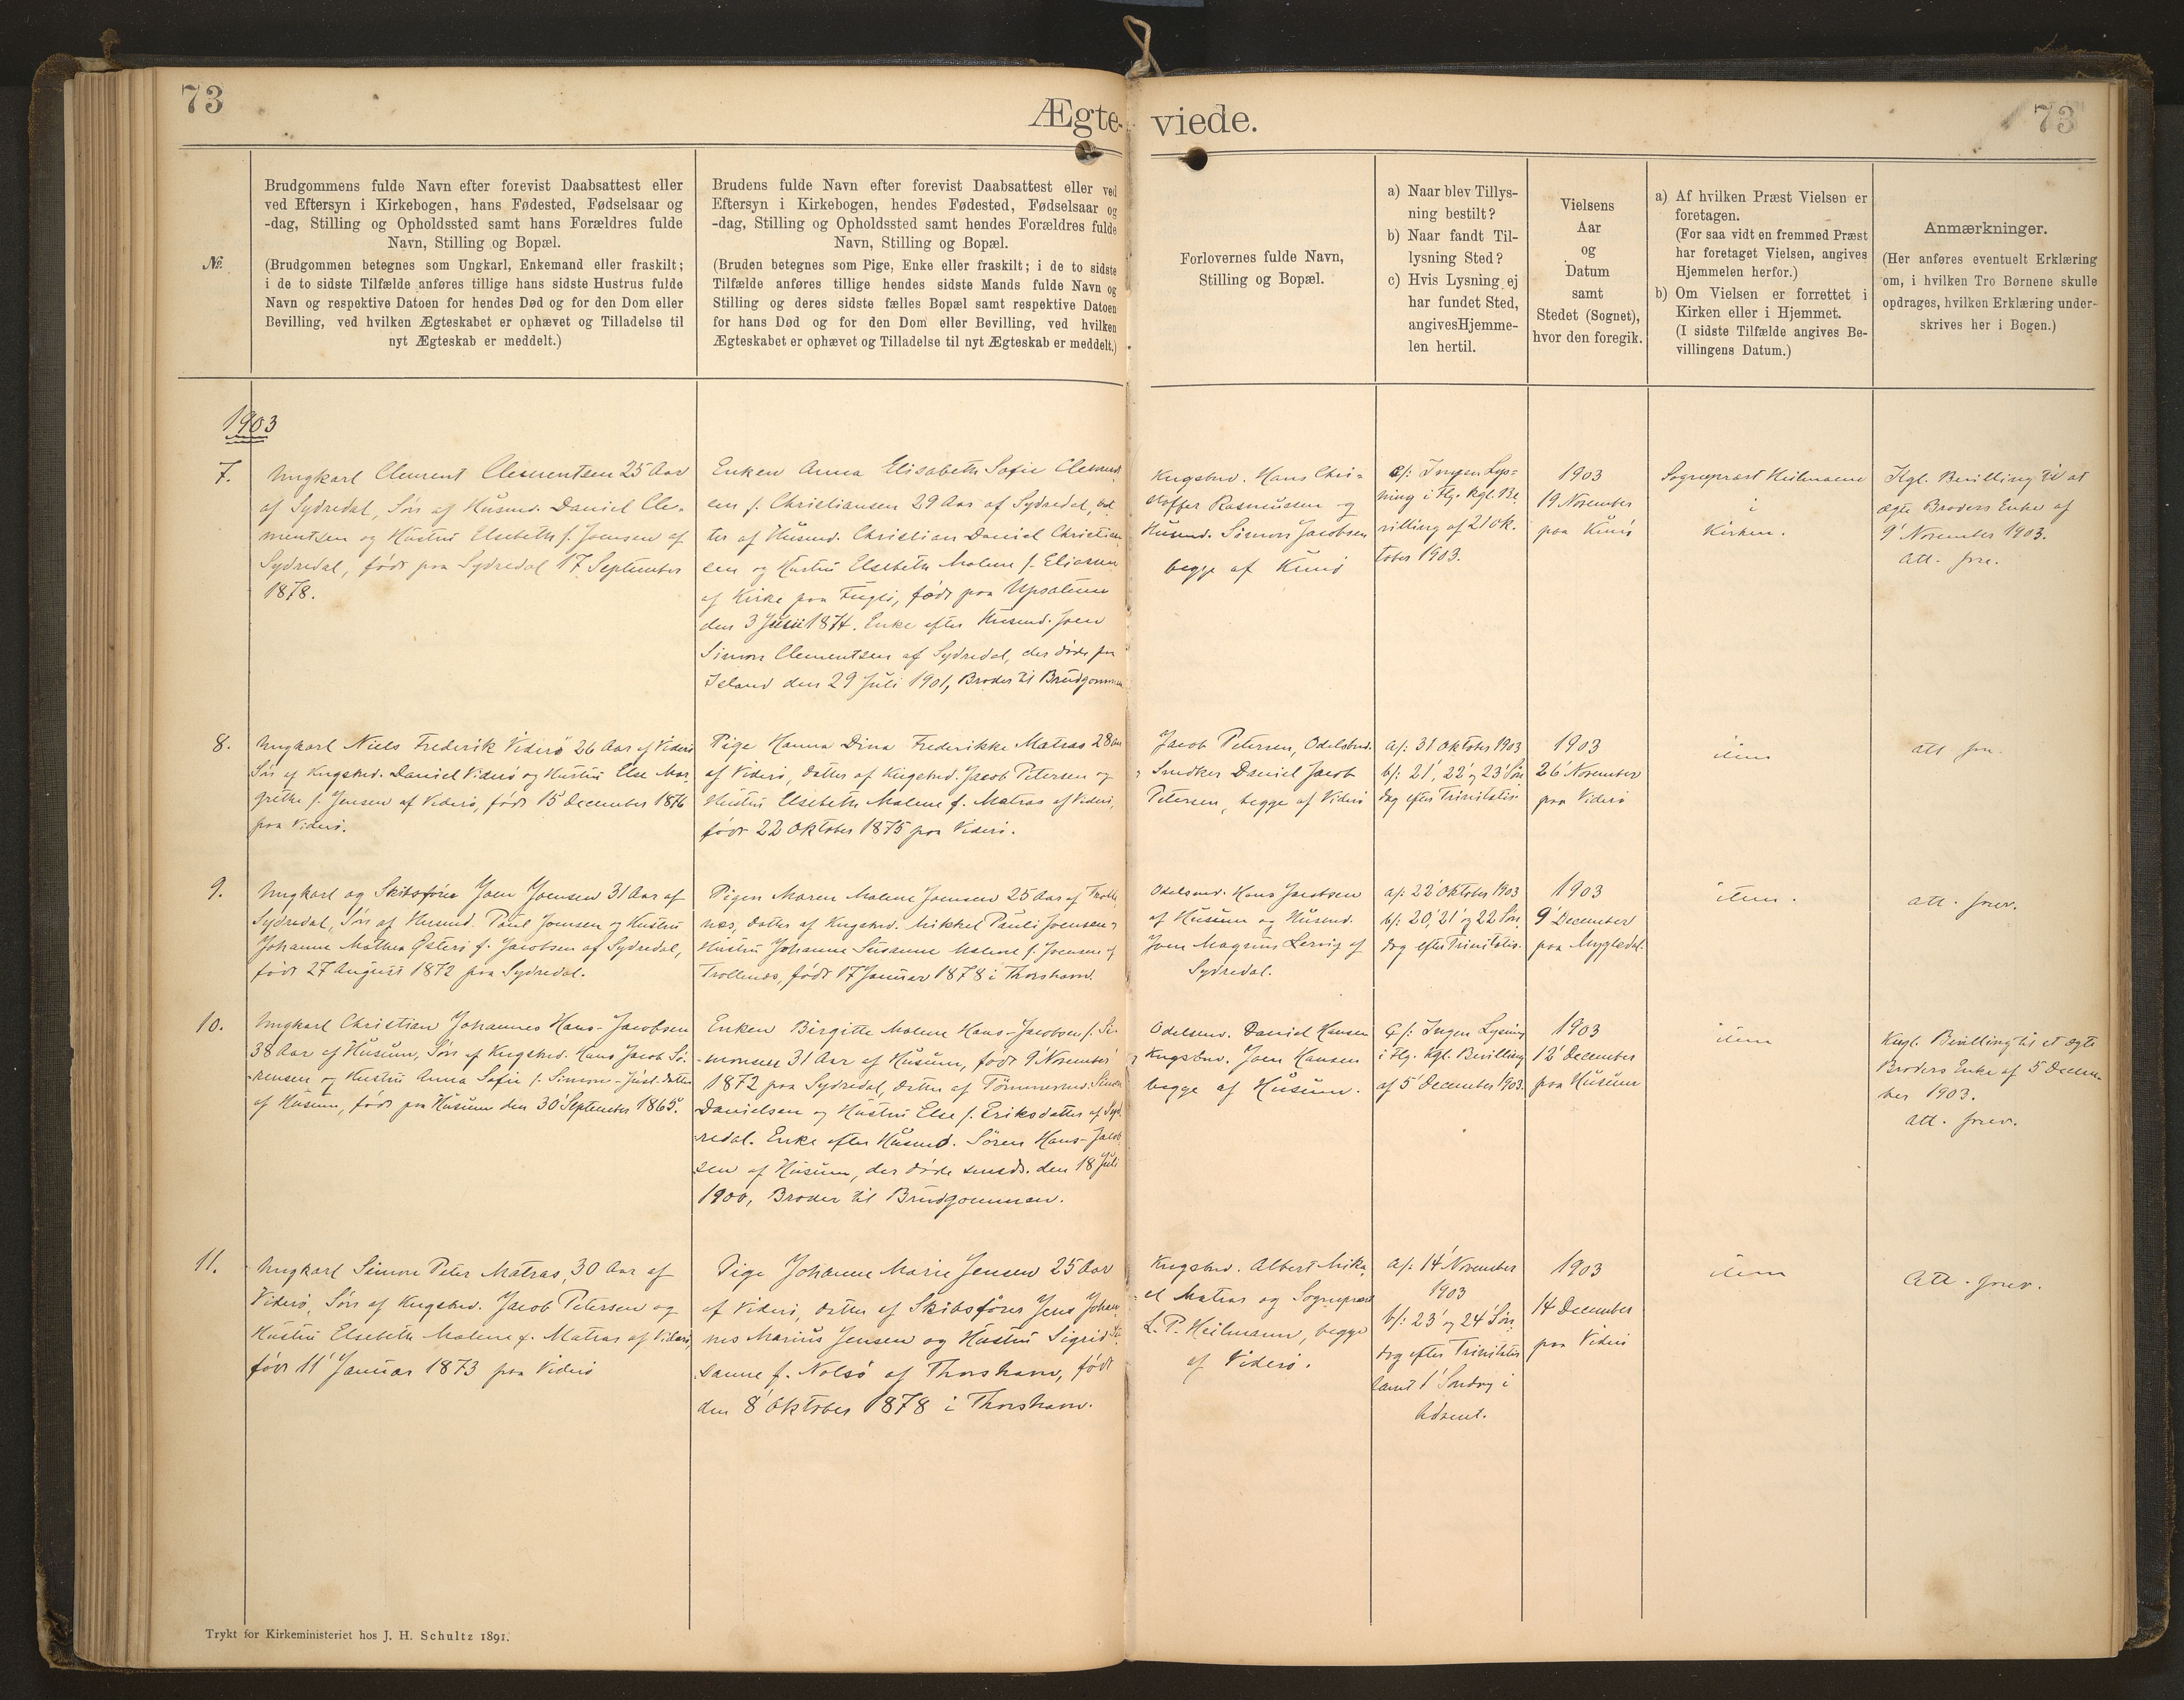 73
Ægte-
viede.
73
№
Brudgommens fulde Navn efter forevist Daabsattest eller
ved Eftersyn i Kirkebogen, hans Fødested, Fødselsaar og
-dag, Stilling og Opholdssted samt hans Forældres fulde
Navn, Stilling og Bopæl.
(Brudgommen betegnes som Ungkarl, Enkemand eller fraskilt;
i de to sidste Tilfælde anføres tillige hans sidste Hustrus fulde
Navn og respektive Datoen for hendes Død og for den Dom eller
Bevilling, ved hvilken Ægteskabet er ophævet og Tilladelse til
nyt Ægteskab er meddelt.)
Brudens fulde Navn efter forevist Daabsattest eller ved
Eftersyn i Kirkebogen, hendes Fødested, Fødselsaar og
-dag, Stilling og Opholdssted samt hendes Forældres fulde
Navn, Stilling og Bopæl.
(Bruden betegnes som Pige, Enke eller fraskilt; i de to sidste
Tilfælde anføres tillige hendes sidste Mands fulde Navn og
Stilling og deres sidste fælles Bopæl samt respektive Datoen
for hans Død og for den Dom eller Bevilling, ved hvilken
Ægteskabet er ophævet og Tilladelse til nyt Ægteskab er meddelt.)
Forlovernes fulde Navn,
Stilling og Bopæl.
a) Naar blev Tillys-
ning bestilt?
b) Naar fandt Til-
lysning Sted?
c) Hvis Lysning ej
har fundet Sted,
angives Hjemme-
len hertil.
Vielsens
Aar
og
Datum
samt
Stedet (Sognet),
hvor den foregik.
a) Af hvilken Præst Vielsen er
foretagen.
(For saa vidt en fremmed Præst
har foretaget Vielsen, angives
Hjemmelen herfor.)
b) Om Vielsen er forrettet i
Kirken eller i Hjemmet.
(I sidste Tilfælde angives Be-
villingens Datum.)
Anmærkninger.
(Her anføres eventuelt Erklæring
om, i hvilken Tro Børnene skulle
opdrages, hvilken Erklæring under-
skrives her i Bogen.)
1903
7.
Ungkarl Clement Clementsen 25 Aar
af Sydredal, Søn af Husmd. Daniel Cle-
mentsen og Hustru Elsebeth f. Joensen af
Sydredal, født paa Sydredal 17 September
1878.
Enken Anna Elisabeth Sofie Clements
en f. Christiansen 29 Aar af Sydredal, Dat
ter af Husmd. Christian Daniel Christian
sen og Hustru Elsebeth Malene f. Eliasen
af Kirke paa Fuglö, født paa
den 3 1874. Enke efter Husmd. Joen
Simon Clementsen af Sydredal, der døde paa
Island den 29 Juli 1901, Broder til Brudgommen
Kngsbmd. Hans Chri-
stoffer Rasmussen og
Husmd. Simon Jacobsen
begge af Kunö
c/: Ingen Lys-
ning i Flg. Kgl. Be
villing af 21 Ok-
tober 1903.
1903
19 November
paa Kunö
Sognepræst Heilmann
i
Kirken.
Kgl. Bevilling til at
ægte Broders Enke af
9' November 1903.
att. frev.
8.
Ungkarl Niels Frederik Viderö 26 Aar af Viderö
Søn af Kngsbmd. Daniel Viderö og Hustru Else Mar
grethe f. Jensen af Viderö, født 15 December 1876
paa Viderö.
Pige Hanna Dina Frederikke Matras 28 Aar
af Viderö, Datter af Kngsbmd. Jacob Petersen og
Hustru Elsebeth Malene f. Matras af Viderö,
født 22 Oktober 1875 paa Viderö.
Jacob Petersen, Odelsbmd.
Snedker Daniel Jacob
Petersen, begge af Viderö
a/: 31 Oktober 1903
b/: 21', 22' og 23' Søn
dag efter Trinitatis.
1903
26' November
paa Viderö
item
att frev.
9.
Ungkarl og Skibsfører Joen Joensen 31 Aar af
Sydredal, Søn af Husmd. Poul Joensen og Hustru
Johanne Mathea Österö f. Jacobsen af Sydredal,
født 27 August 1872 paa Sydredal.
Pigen Maren Malene Joensen 25 Aar af Trolle
næs, Datter af Kngsbmd. Mikkel Pauli Joensen og
Hustru Johanne Susanne Malene f. Joensen af
Trollenæs, født 17 Januar 1878 i Thorshavn.
Odelsmd. Hans Jacobsen
af Husum og Husmd.
Joen Magnus Lervig af
Sydredal.
a/: 22' Oktober 1903
b/: 20', 21' og 22 Søn
dag efter Trinitatis.
1903
9' December
paa Mygledal.
item.
att. frev.
10.
Ungkarl Christian Johannes Hans-Jacobsen
38 Aar af Husum, Søn af Kngsbmd. Hans Jacob Sö-
rensen og Hustru Anna Sofie f. Simon-Joensdatter
af Husum, født paa Husum den 30' September 1865.
Enken Birgitte Malene Hans-Jacobsen f. Si-
monsen 31 Aar af Husum, født 9' November
1872 paa Sydredal, Datter af Tömmermd. Simon
Danielsen og Hustru Else f. Eriksdatter af Syd
redal. Enke efter Husmd. Sören Hans-Jacob
sen af Husum, der døde smsds. den 18 Juli
1900, Broder til Brudgommen.
Odelsmd. Daniel Hansen
og Kngsbmd. Joen Hansen
begge af Husum.
c/: Ingen Lysning
i Flg. Kgl. Bevilling
af 5' December 1903.
1903
12' December
paa Husum
item
Kngl. Bevilling til at ægte
Broders Enke af 5 Decem-
ber 1903.
att. frev.
11.
Ungkarl Simon Peter Matras, 30 Aar af
Viderö, Søn af Kngsbmd. Jacob Petersen og
Hustru Elsebeth Malene f. Matras af Viderö,
født 11' Januar 1873 paa Viderö
Pige Johanne Marie Jensen 25 Aar
af Viderö, Datter af Skibsfører Jens Johan
nes Marius Jensen og Hustru Sigrid Su
sanne f. Nolsö af Thorshavn, født
den 8' Oktober 1878 i Thorshavn.
Kngsbmd. Albert Mika
el Matras og Sognepræst
L. P. Heilmann, begge
af Viderö.
a/: 14' November
1903
b/: 23' og 24' Søn
dag efter Trinitatis
samt 1' Søndag i
Advent.
1903
14 December
paa Viderö
item
att. frev.
Trykt for Kirkeministeriet hos J. H. Schultz 1891.